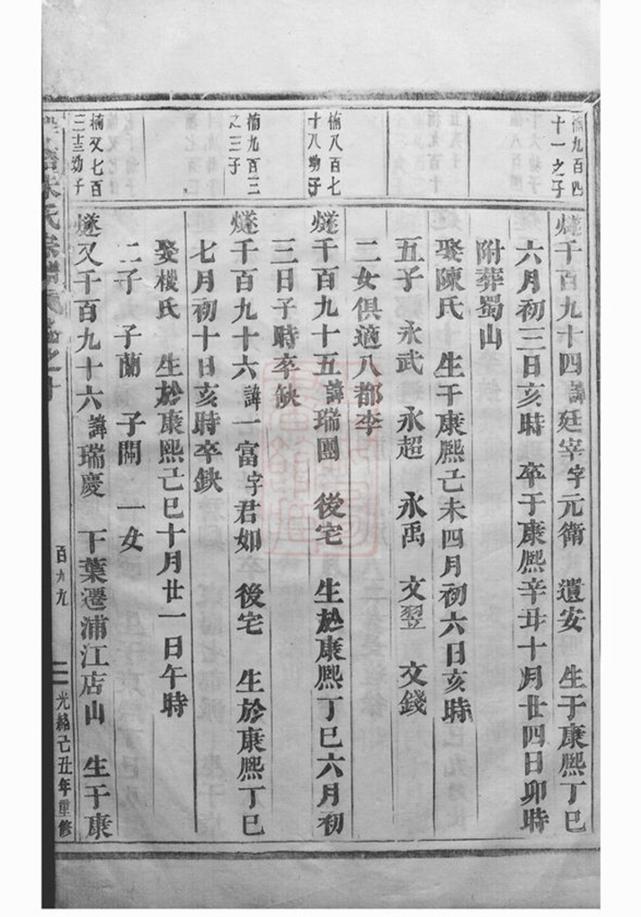 楠九百四
十一之子
燧千百九十四諱廷宰字元衛 遺安 生于康熙丁巳
六月初三日亥時 卒于康熙辛丑十月廿四日卯時
附葬蜀山
娶陳氏 生于康熙己未四月初六日亥時
五子 永武 永超 永禹 文翌 文錢
二女俱適八都李
楠八百七
十八幼子
燧千百九十五諱瑞團 後宅 生於康熙丁巳六月初
三日子時卒缺
楠九百三
之三子
燧千百九十六諱一富字君如 後宅 生於康熙丁巳
七月初十日亥時卒缺
娶樓氏 生於康熙己巳十月廿一日午時
二子 子蘭 子開 一女
楠又七百
三十三幼子
燧又千百九十六諱瑞慶 下葉遷浦江店山 生于康
朱氏宗譜
百九九
光緒己丑年重修